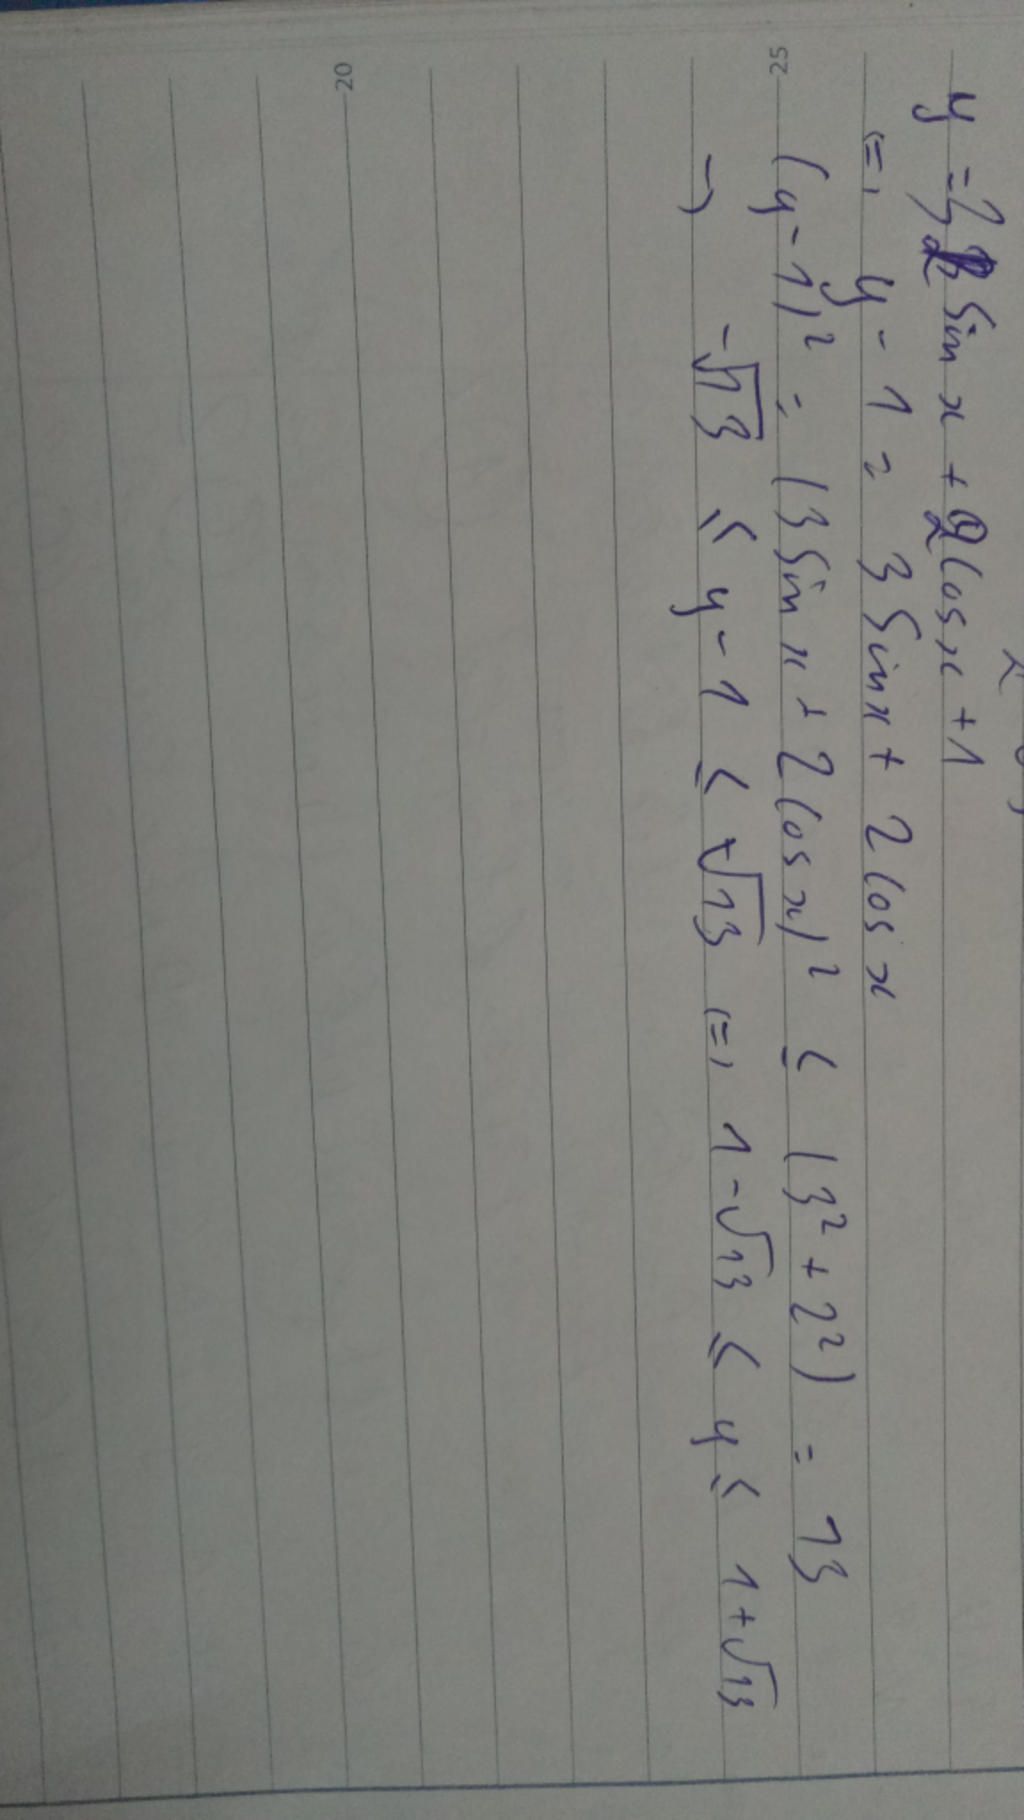 y = 3 sin x + 2 cos x + 1
(=) y - 1 = 3 sin x + 2 cos x
25 (y - 1)² = (3 sin x + 2 cos x)² ≤ (3² + 2²) = 13
=) -√13 ≤ y - 1 ≤ +√13 (=) 1 - √13 ≤ y ≤ 1 + √13
20